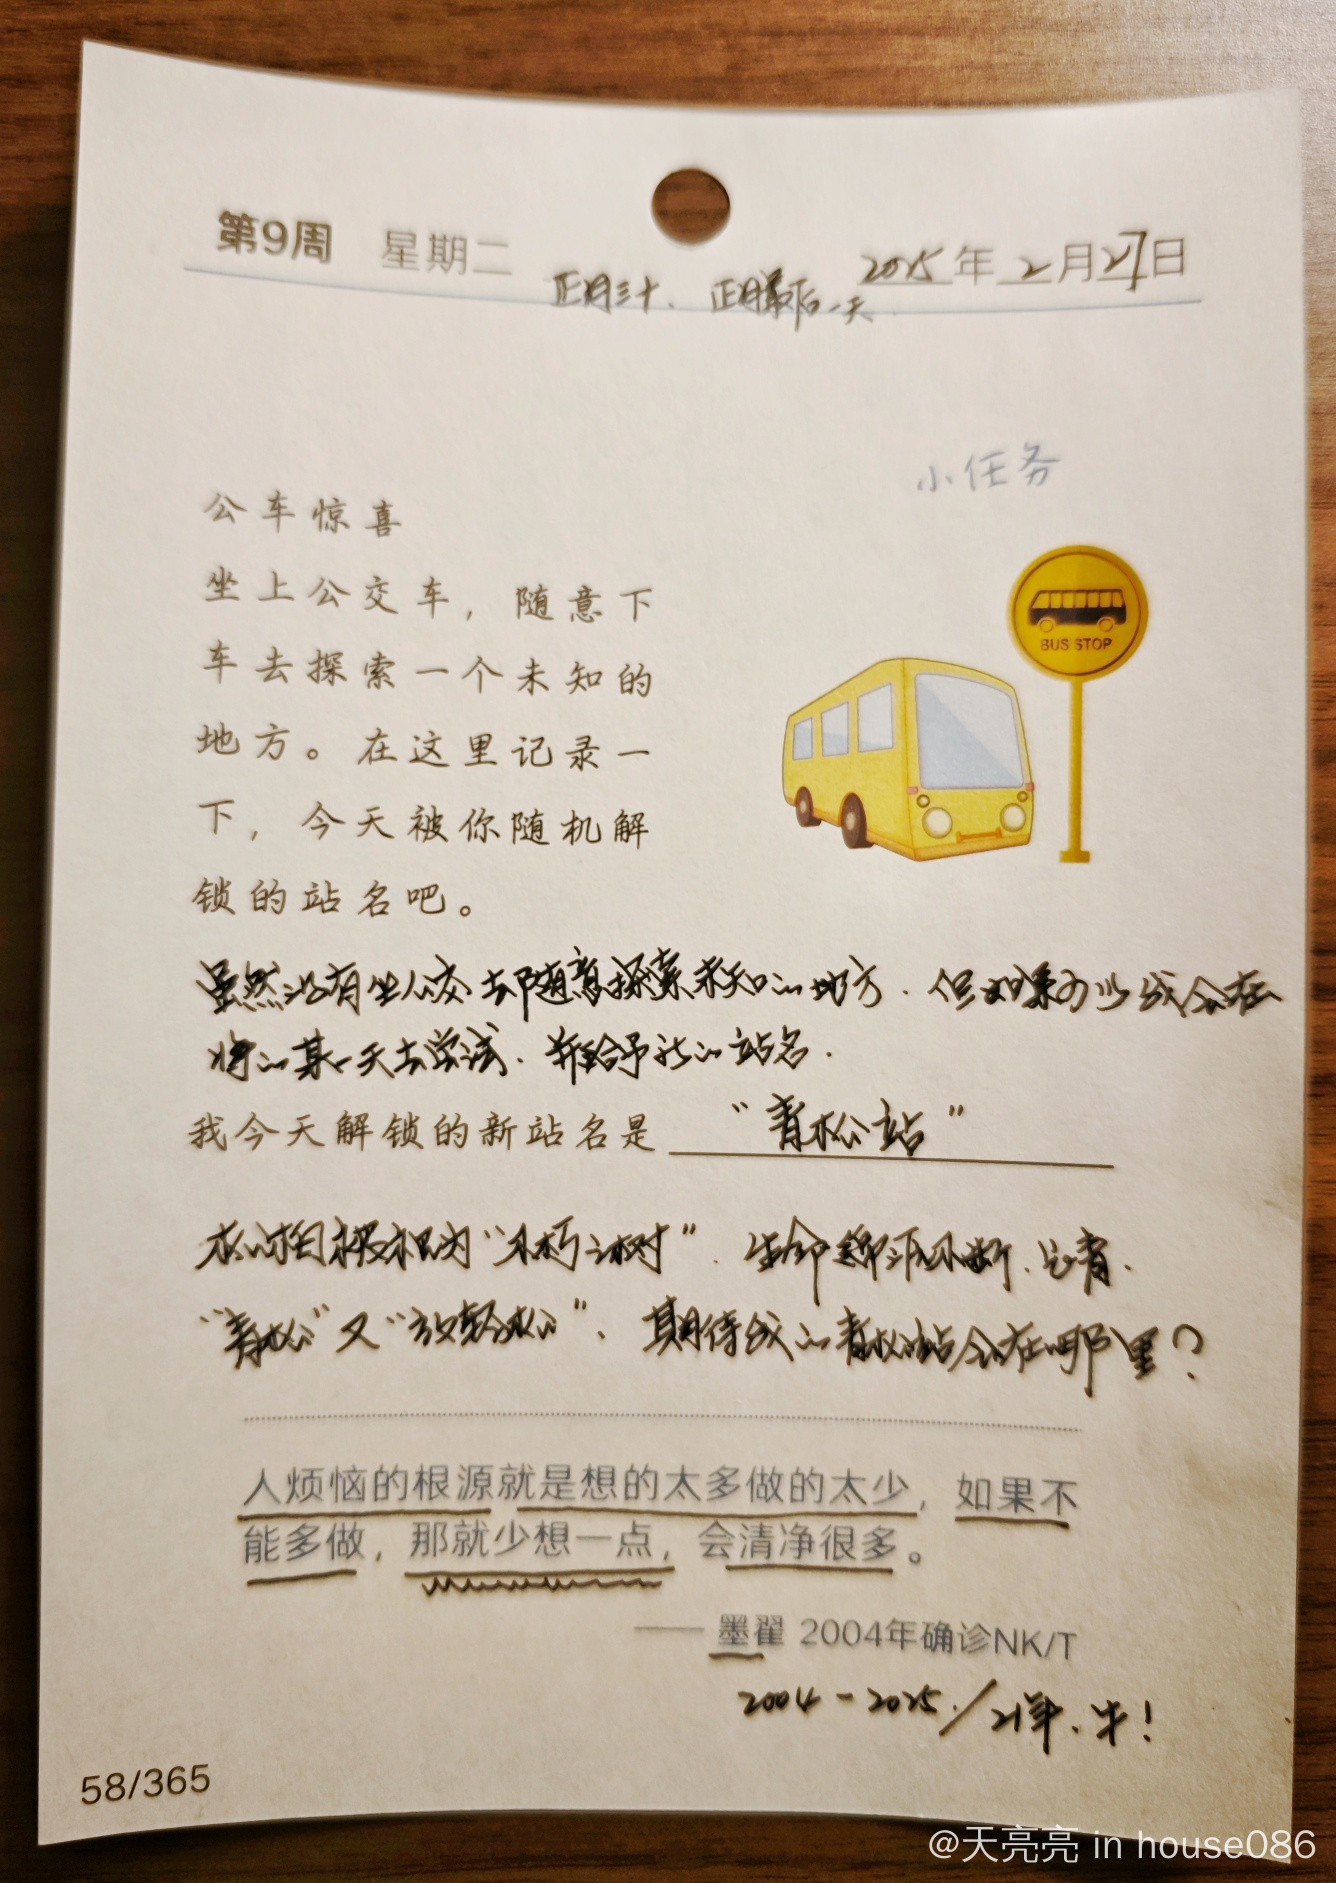 第9周 星期二 2025年2月27日
正月三十. 正月最后一天.
小任务
公车惊喜
坐上公交车，随意下
车去探索一个未知的
地方。在这里记录一
下，今天被你随机解
锁的站名吧。
BUS STOP
虽然没有坐公交去随意探索未知的地方. 但 我会在
将的某一天去尝试. 并给予 的站名.
我今天解锁的新站名是 “青松站”
松柏被视为“不朽之树”. 生命 不断.
“青松”又“放轻松”. 期待我的青松站会在哪里？
人烦恼的根源就是想的太多做的太少，如果不
能多做，那就少想一点，会清净很多。
—— 墨翟 2004年确诊NK/T
2004-2025./21年.牛！
58/365
@天亮亮 in house086